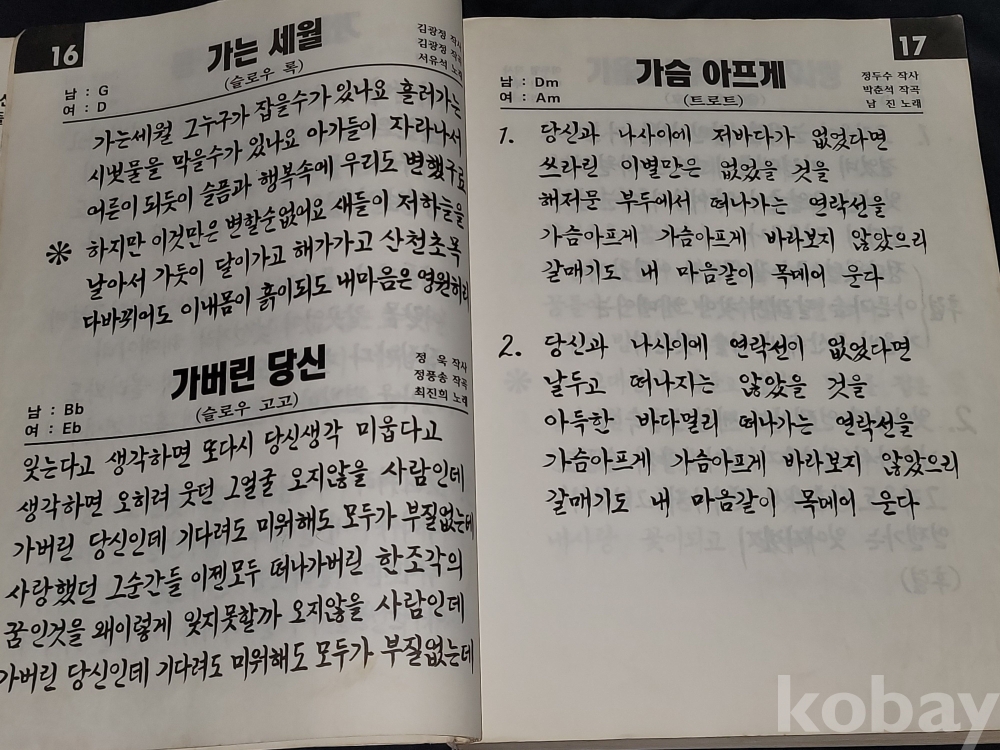 16
가는 세월
(슬로우 록)
김광정 작사
김광정 작곡
서유석 노래
남 : G
여 : D
가는세월 그누구가 잡을수가있나요 흘러가는
시냇물을 막을수가 있나요 아가들이 자라나서
어른이되듯이 슬픔과 행복속에 우리도 변했구료
※ 하지만 이것만은 변할순없어요 새들이 저하늘을
날아서 가듯이 달이가고 해가가고 산천초목
다바뀌어도 이내몸이 흙이되도 내마음은 영원하리
가버린 당신
(슬로우 고고)
정 욱 작사
정풍송 작곡
최진희 노래
남 : Bb
여 : Eb
잊는다고 생각하면 또다시 당신생각 미웁다고
생각하면 오히려 웃던 그얼굴 오지않을 사람인데
가버린 당신인데 기다려도 미워해도 모두가 부질없는데
사랑했던 그순간들 이젠모두 떠나가버린 한조각의
꿈인것을 왜이렇게 잊지못할까 오지않을 사람인데
가버린 당신인데 기다려도 미워해도 모두가 부질없는데
17
가슴 아프게
(트로트)
정두수 작사
박춘석 작곡
남 진 노래
남 : Dm
여 : Am
1. 당신과 나사이에 저바다가 없었다면
쓰라린 이별만은 없었을 것을
해저문 부두에서 떠나가는 연락선을
가슴아프게 가슴아프게 바라보지 않았으리
갈매기도 내 마음같이 목메어 운다
2. 당신과 나사이에 연락선이 없었다면
날두고 떠나지는 않았을 것을
아득한 바다멀리 떠나가는 연락선을
가슴아프게 가슴아프게 바라보지 않았으리
갈매기도 내 마음같이 목메어 운다
kobay